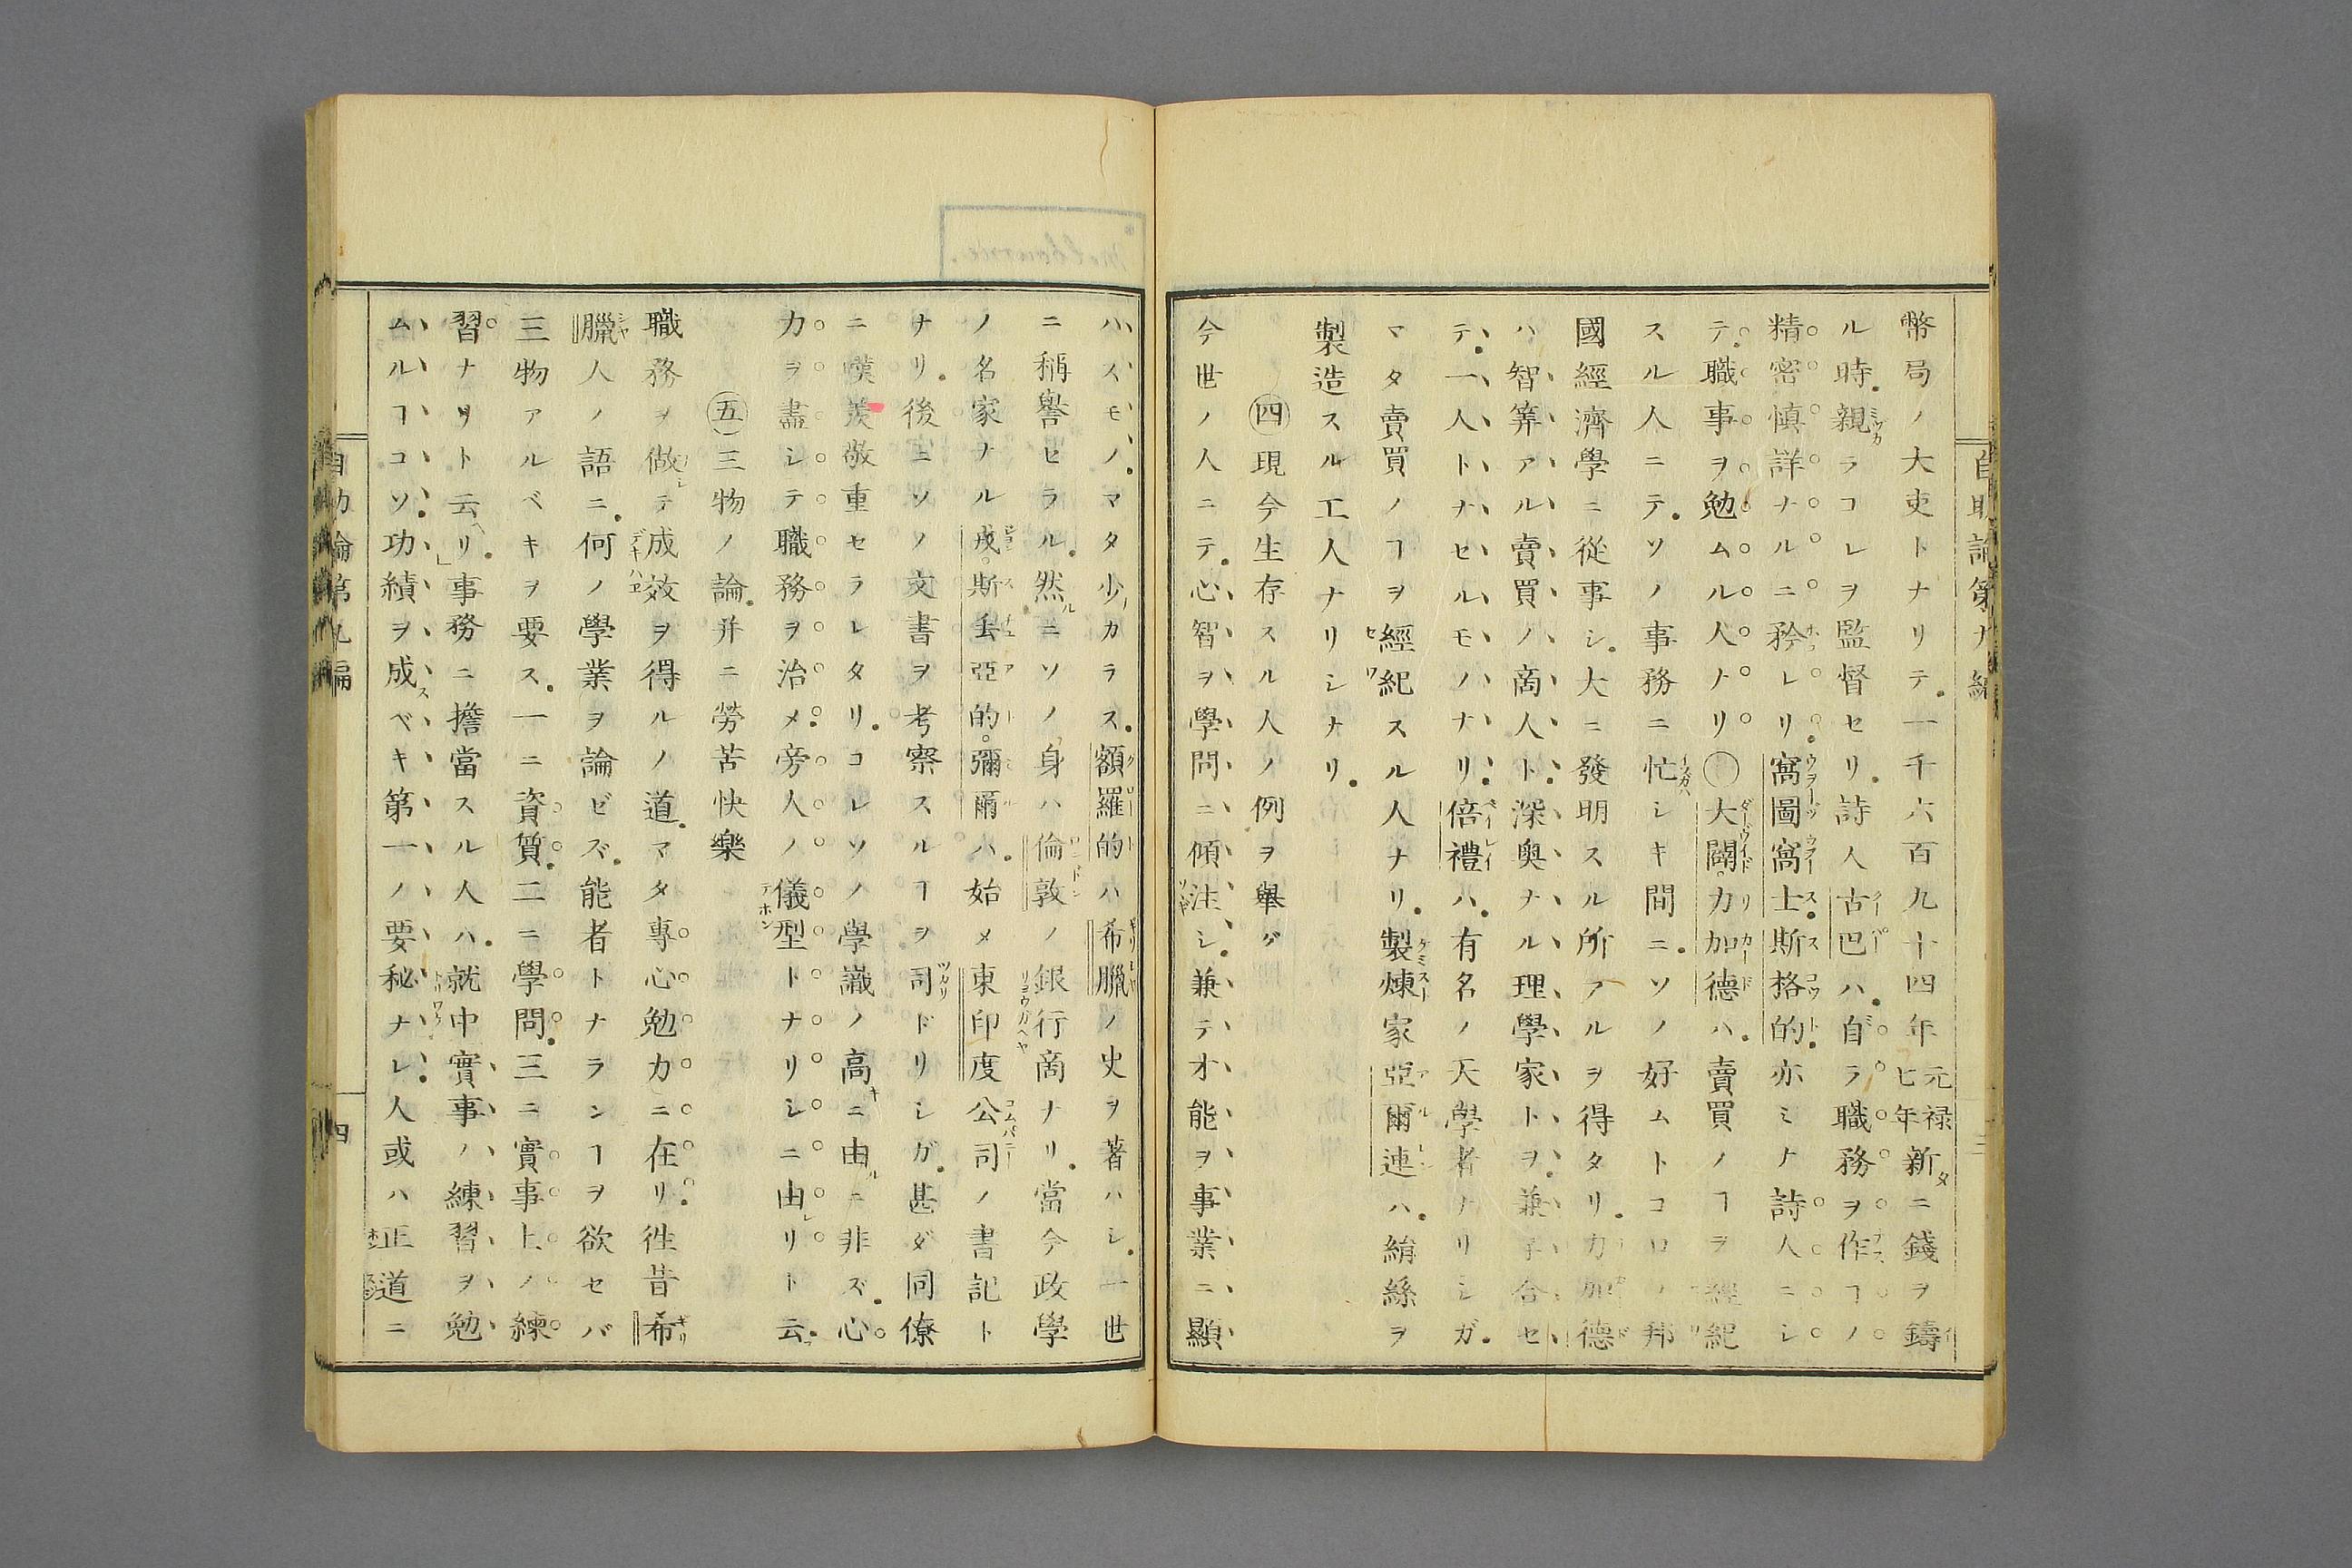 幣局ノ大吏トナリテ一千六百九十四年元禄七年新タニ錢ヲ鑄
ル時親ラコレヲ監督セリ詩人古巴ハ自ラ職務ヲ作スヿノ
精密慎詳ナルニ矜レリ窩圖窩士斯格的亦ミナ詩人ニシ
テ職事ヲ勉ムル人ナリ〇大闢力加德ハ賣買ノヿヲ經紀
スル人ニテソノ事務ニ忙シキ間ニソノ好ムトコロノ邦
國經濟學ニ從事シ大ニ發明スル所アルヲ得タリ力加德
ハ智筭アル賣買ノ商人ト深奥ナル理學家トヲ兼子合セ
テ一人トナセルモノナリ倍禮ハ有名ノ天學者ナリシガ
マタ賣買ノヿヲ經紀スル人ナリ製煉家亞爾連ハ絹絲ヲ
製造スル工人ナリシナリ
四現今生存スル人ノ例ヲ舉グ
今世ノ人ニテ心智ヲ學問ニ傾注シ兼テ才能ヲ事業ニ顯
ハスモノマタ少カラス額羅的ハ希臘ノ史ヲ著ハシ一世
ニ稱譽セラル然ルニソノ身ハ倫敦ノ銀行商ナリ當今政學
ノ名家ナル戎斯丢亞的彌爾ハ始メ東印度公司ノ書記ト
ナリ後ニソノ文書ヲ考察スルヿヲ司ドリシガ甚ダ同僚
ニ嘆羨敬重セラレタリコレソノ學識ノ高キニ由ルニ非ズ心
力ヲ盡シテ職務ヲ治メ旁人ノ儀型トナリシニ由レリト云フ
五三物ノ論并ニ勞苦快樂
職務ヲ做シテ成效ヲ得ルノ道マタ專心勉力ニ在リ徃昔希
臘人ノ語ニ何ノ學業ヲ論ゼズ能者トナランヿヲ欲セバ
三物アルベキヲ要ス一ニ資質二ニ學問三ニ實事上ノ練
習ナリト云ヘリ事務ニ擔當スル人ハ就中實事ノ練習ヲ勉
ムルヿコソ功績ヲ成スベキ第一ノ要秘ナレ人或ハ正道ニ
自助論第九編
四